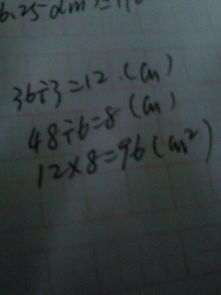 6.25 dm
36÷3=12.(cm)
48÷6=8(cm)
12×8=96(cm²)